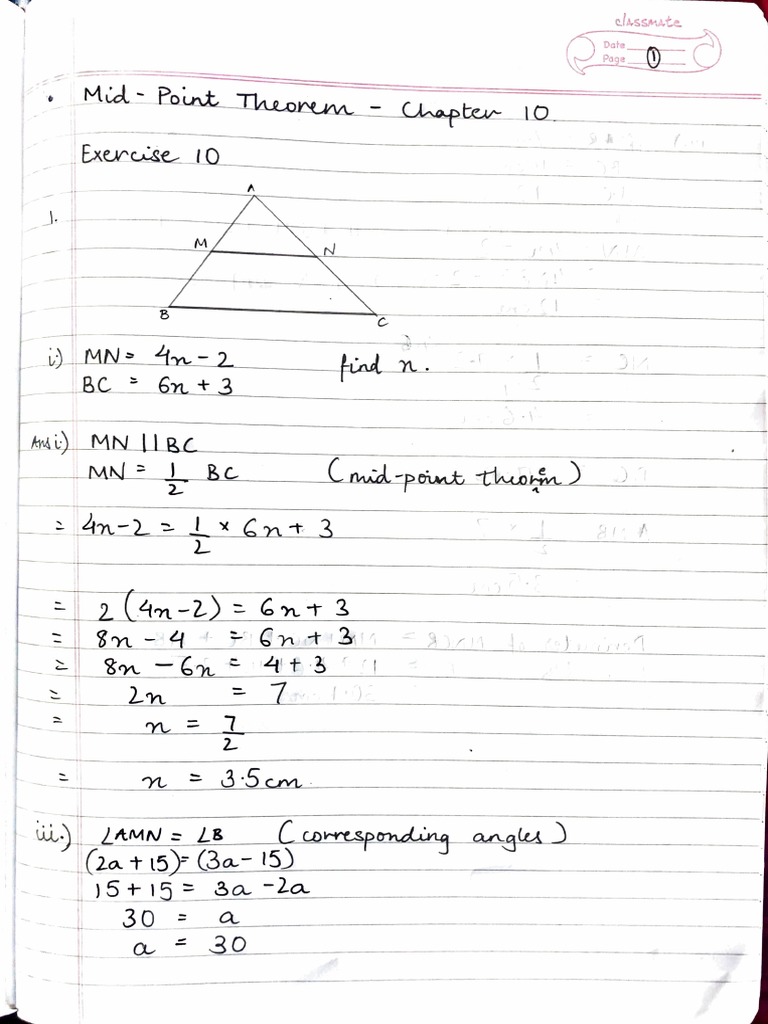 classmate
Date
Page 1
• Mid-Point Theorem - Chapter 10.
Exercise 10
1.
A
M
N
B
C
i) MN = 4n - 2 find n.
BC = 6n + 3
Ans i) MN || BC
MN = 1/2 BC (mid-point theorem)
= 4n-2 = 1/2 × 6n + 3
= 2(4n-2) = 6n + 3
= 8n - 4 = 6n + 3
= 8n - 6n = 4 + 3
= 2n = 7
= n = 7/2
= n = 3.5cm.
iii.) ∠AMN = ∠B (corresponding angles)
(2a + 15) = (3a - 15)
15 + 15 = 3a - 2a
30 = a
a = 30